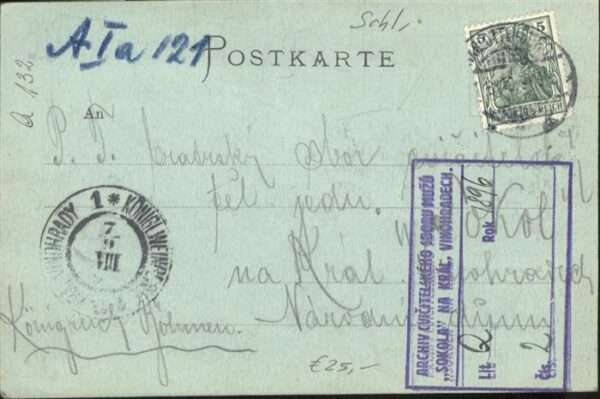 Schl.
A I a 121
POSTKARTE
a 132
An
5
P. T.
sbor
těl. jedn. "Sokol"
na Král. Vinohradech
Národní dům
Königreich Böhmen.
1 * KÖNIGL. WEINBERGE
VINOHRADY
VIII
€25,-
ARCHIV CVIČITELSKÉHO SBORU MUŽŮ
„SOKOLA" NA KRÁL. VINOHRADECH.
Lit. Q Rok 1896
Čís. 2